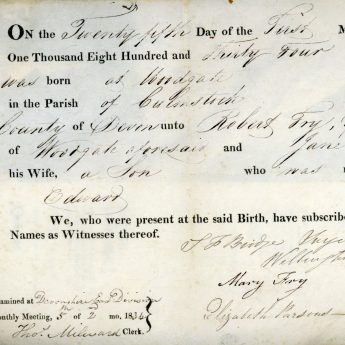 ON the Twenty fifth Day of the First M
One Thousand Eight Hundred and Thirty Four
was born at Woodgate
in the Parish of Culmstock
County of Devon unto Robert Fry,
of Woodgate aforesaid and Jane
his Wife, a Son who was n
Edward
We, who were present at the said Birth, have subscribe
Names as Witnesses thereof.
Mary Fry
Elizabeth Parsons
amined at Devonshire East Division
onthly Meeting, 5th of 2 mo. 1834
Thos. Milward Clerk.